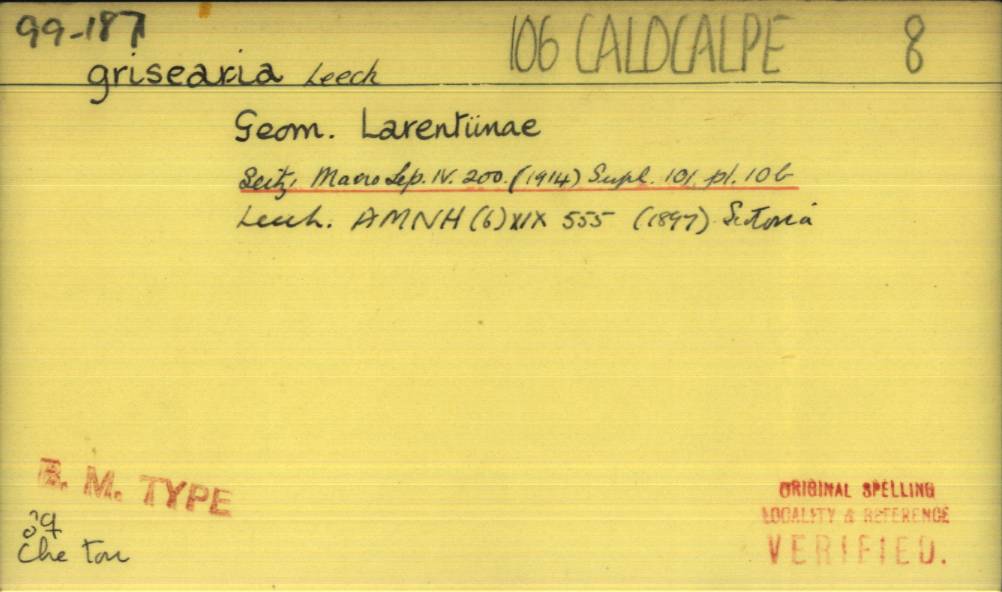 99-187
106 CALOCALPE 8
grisearia Leech
Geom. Larentiinae
Seitz, Macro Lep. IV. 200. (1914) Supl. 101. pl. 10 b
Leech. AMNH (6) XIX 555 (1897)
B. M. TYPE
♂♀
Che tou
ORIGINAL SPELLING
LOCALITY & REFERENCE
VERIFIED.